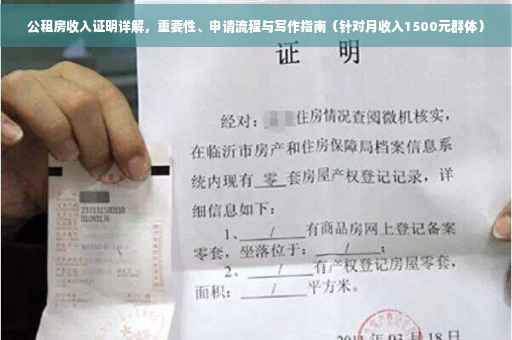 公租房收入证明详解，重要性、申请流程与写作指南（针对月收入1500元群体）
证 明
经对：住房情况查阅微机核实，
在临沂市房产和住房保障局档案信息系
统内现有 零 套房屋产权登记记录，详
细信息如下：
1、 / 有商品房网上登记备案
零套，坐落位于： / ；
2、 / 有产权登记房屋零套，
面积： / 平方米。
03 月 18 日